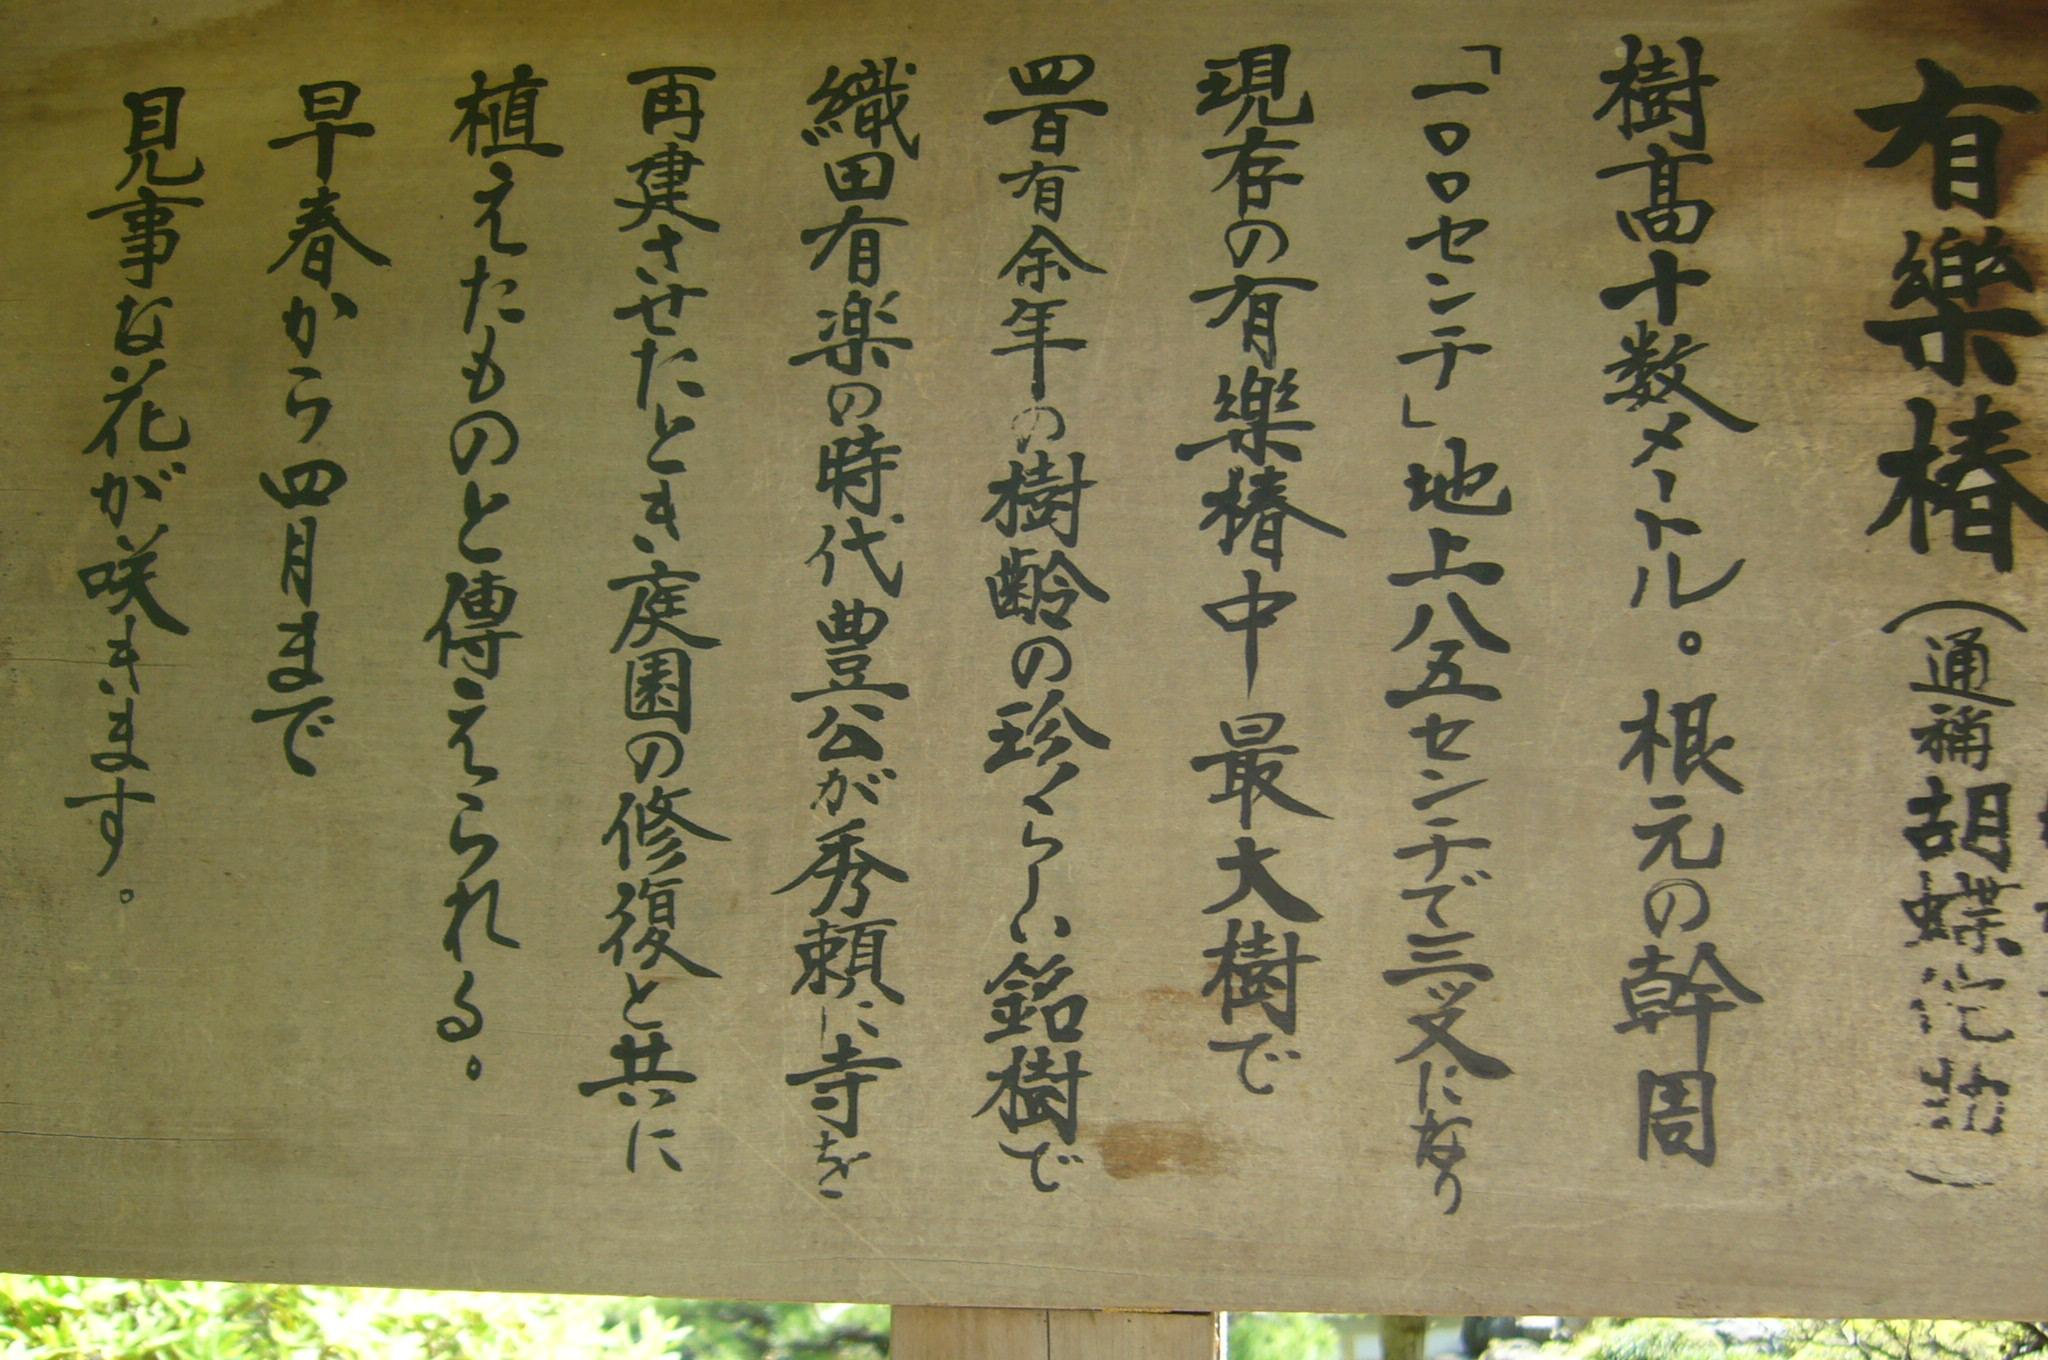 有樂椿(通称胡蝶侘助)
樹高十数メートル。根元の幹周
「一〇〇センチ」地上八五センチで三ツ叉になり
現存の有樂椿中最大樹で
四百有余年の樹齢の珍らしい銘樹で
織田有楽の時代豊公が秀頼に寺を
再建させたとき庭園の修復と共に
植えたものと傳えられる。
早春から四月まで
見事な花が咲きます。